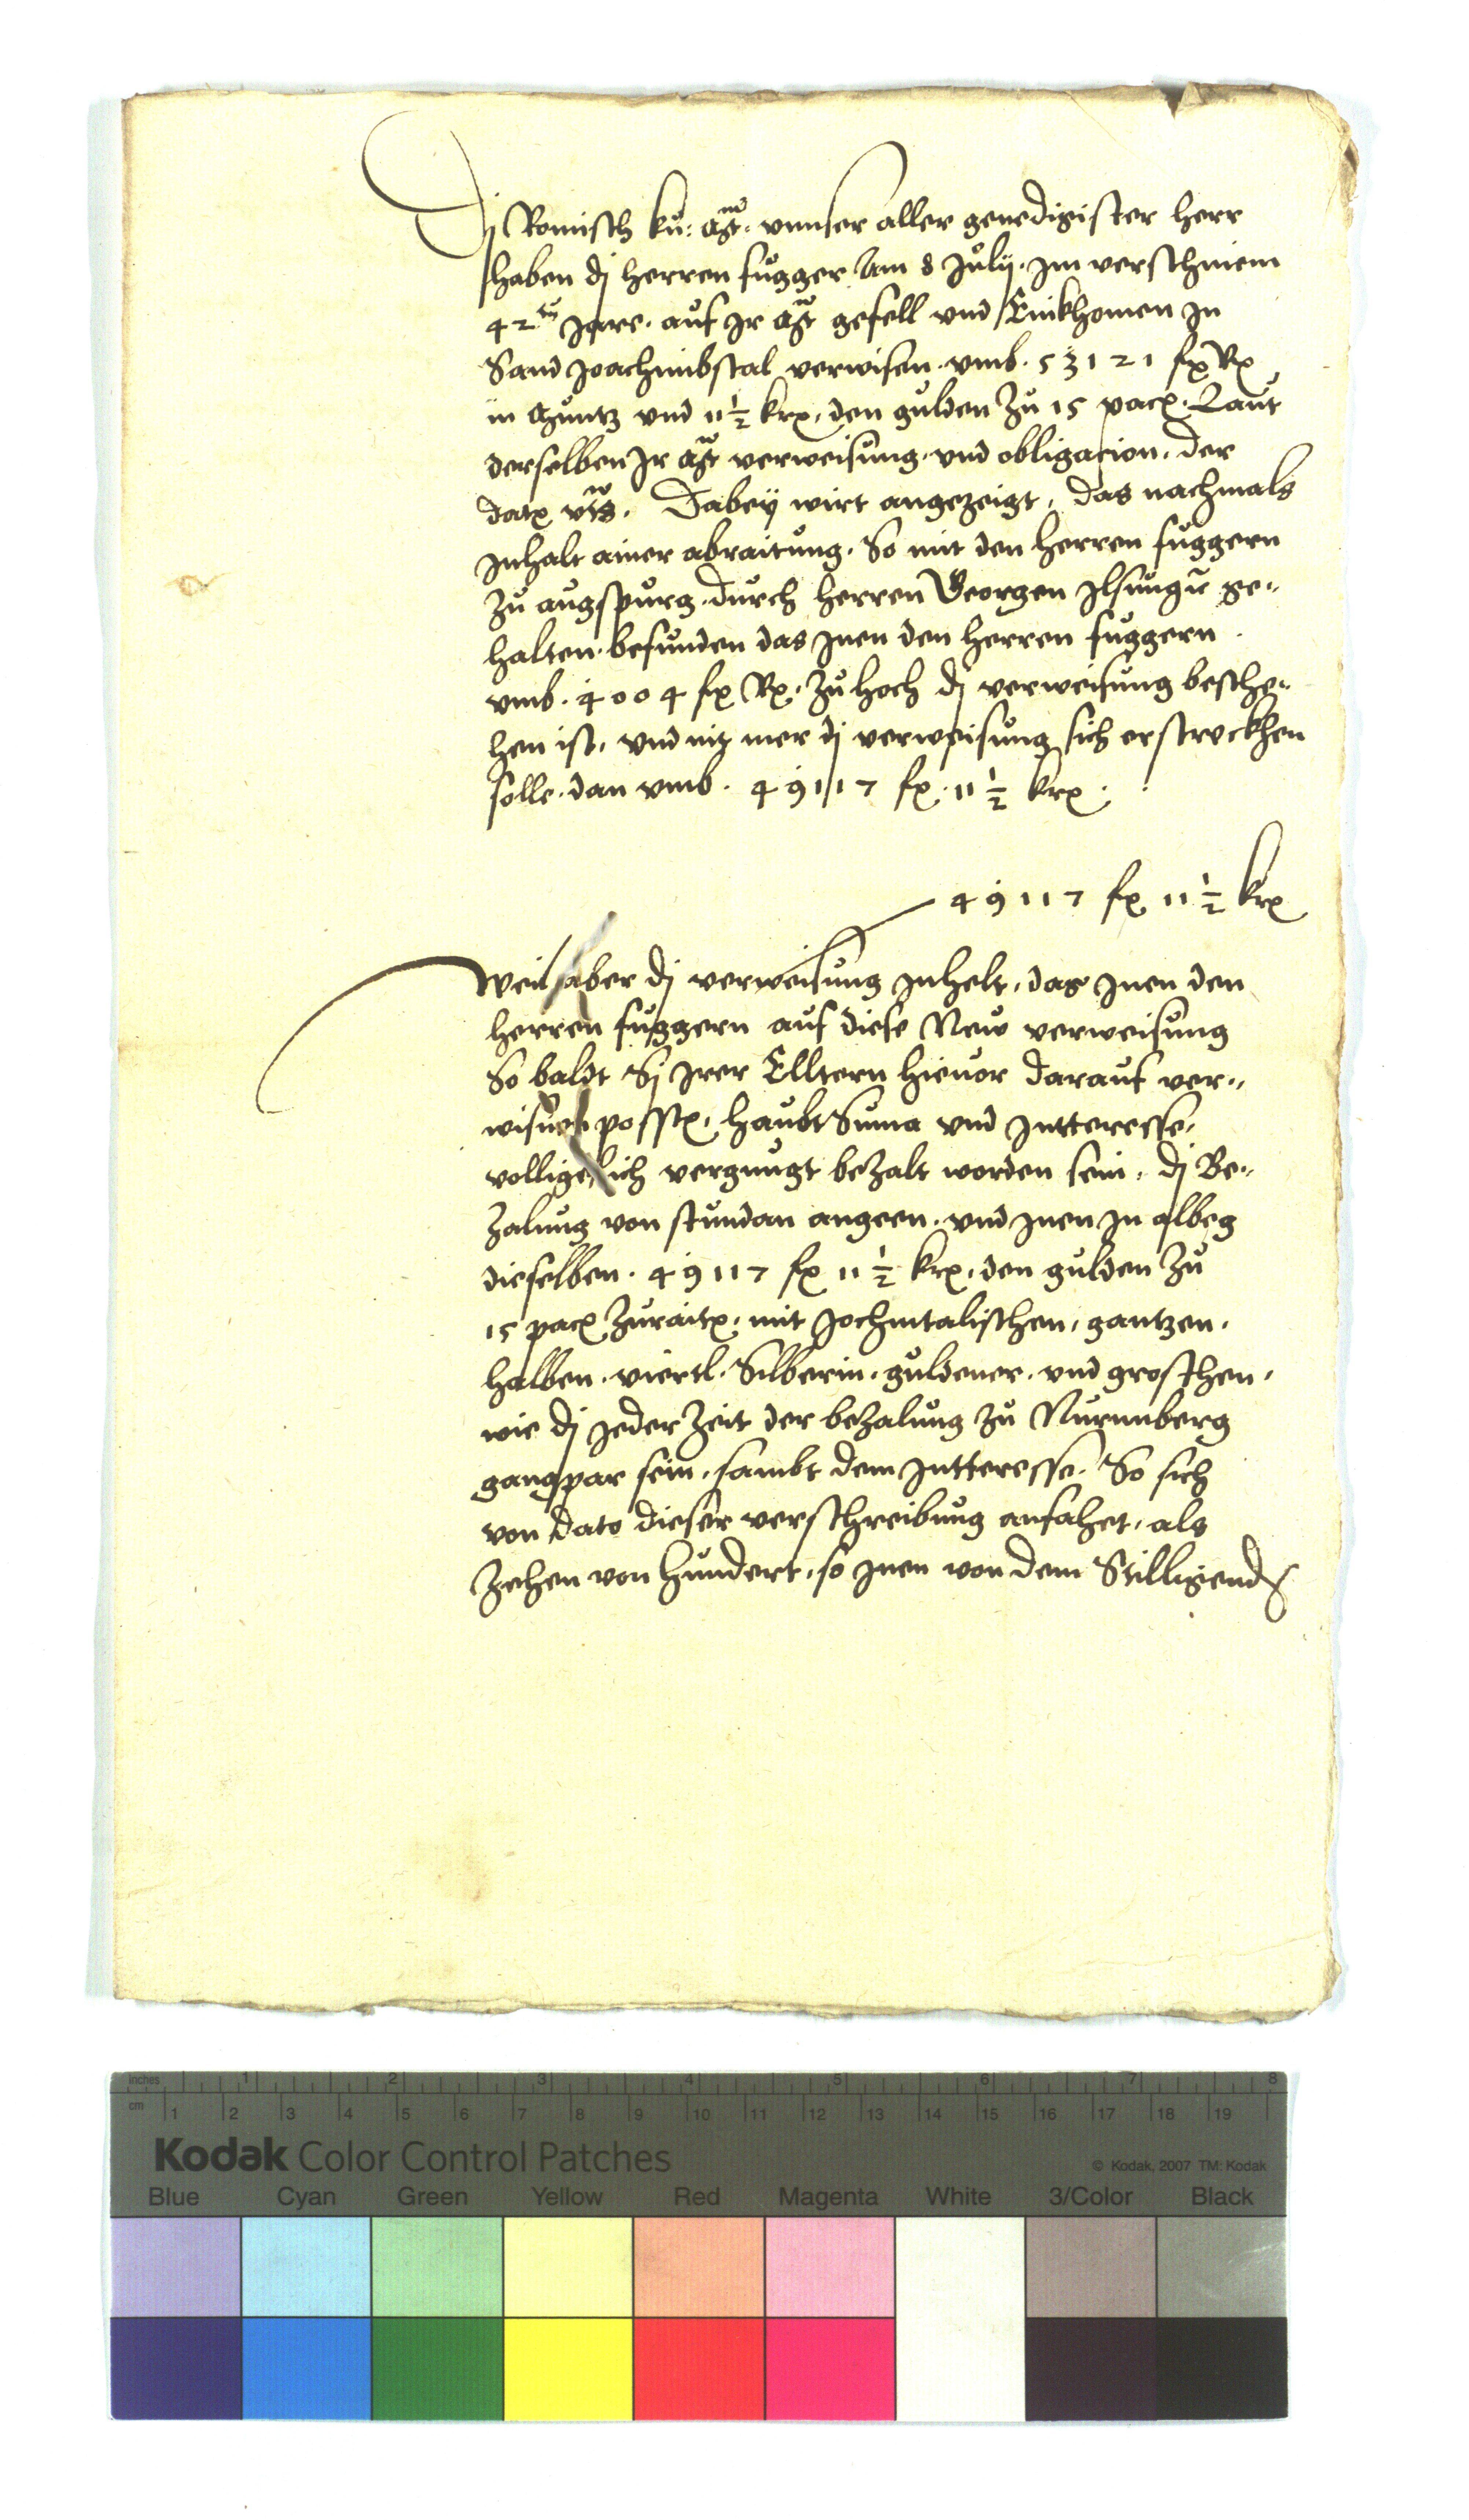 Dj Romisch kü: Mt. vnnser aller genedigister herr
haben dj herren fugger Am 8 Julij. Im verschinem
42ten Jare. auf Jr Mt gefell vnd Einkhomen In
Sand Joachimbstal verwisen. vmb. 53121 fx Rx
in Muntz vnd 11 1/2 krx. den gulden Zu 15 pacx. Laut
derselben Jr Mt verweisung. vnd obligacion. der
datx vts. Dabeÿ wirt angezeigt, das nachmals
Inhalt ainer abraitung. So mit den herren fuggern
Zu augspurg. durch herren Georgen Ilsungn ge„
halten. befunden das Inen den herren fuggern.
vmb. 4004 fx Rx. Zu hoch dj verweisung besche„
hen ist, vnd nit mer dj verweisung sich erstreckhen
solle. dan vmb. 49117 fx. 11 1/2 krx.
49117 fx 11 1/2 krx
Weil aber dj verweisung Inhelt, das Inen den
herren fuggern auf diese New verweisung
So baldt Sj Irer Elltern hieuor darauf ver„
wisnen possx, haubt Suma vnd Intteresse,
volligclich vergnugt bezalt worden sein. dj Be„
Zalung von stundan angeen. vnd Inen In albeg
dieselben. 49117 fx 11 1/2 krx. den gulden Zu
15 pacx Zuraitx, mit Jochmtalischen, gantzen.
halben. viertl. Silberin. guldener. vnd groschen,
wie dj Jeder Zeit der bezalung Zu Nurmberg
gangpar sein, sambt dem Intteresse. So sich
von dato dieser verschreibung anfahet, als
Zehen von hundert, so Inen von dem Stilligend
inches 1 2 3 4 5 6 7 8
cm 1 2 3 4 5 6 7 8 9 10 11 12 13 14 15 16 17 18 19
Kodak Color Control Patches
© Kodak, 2007 TM: Kodak
Blue Cyan Green Yellow Red Magenta White 3/Color Black